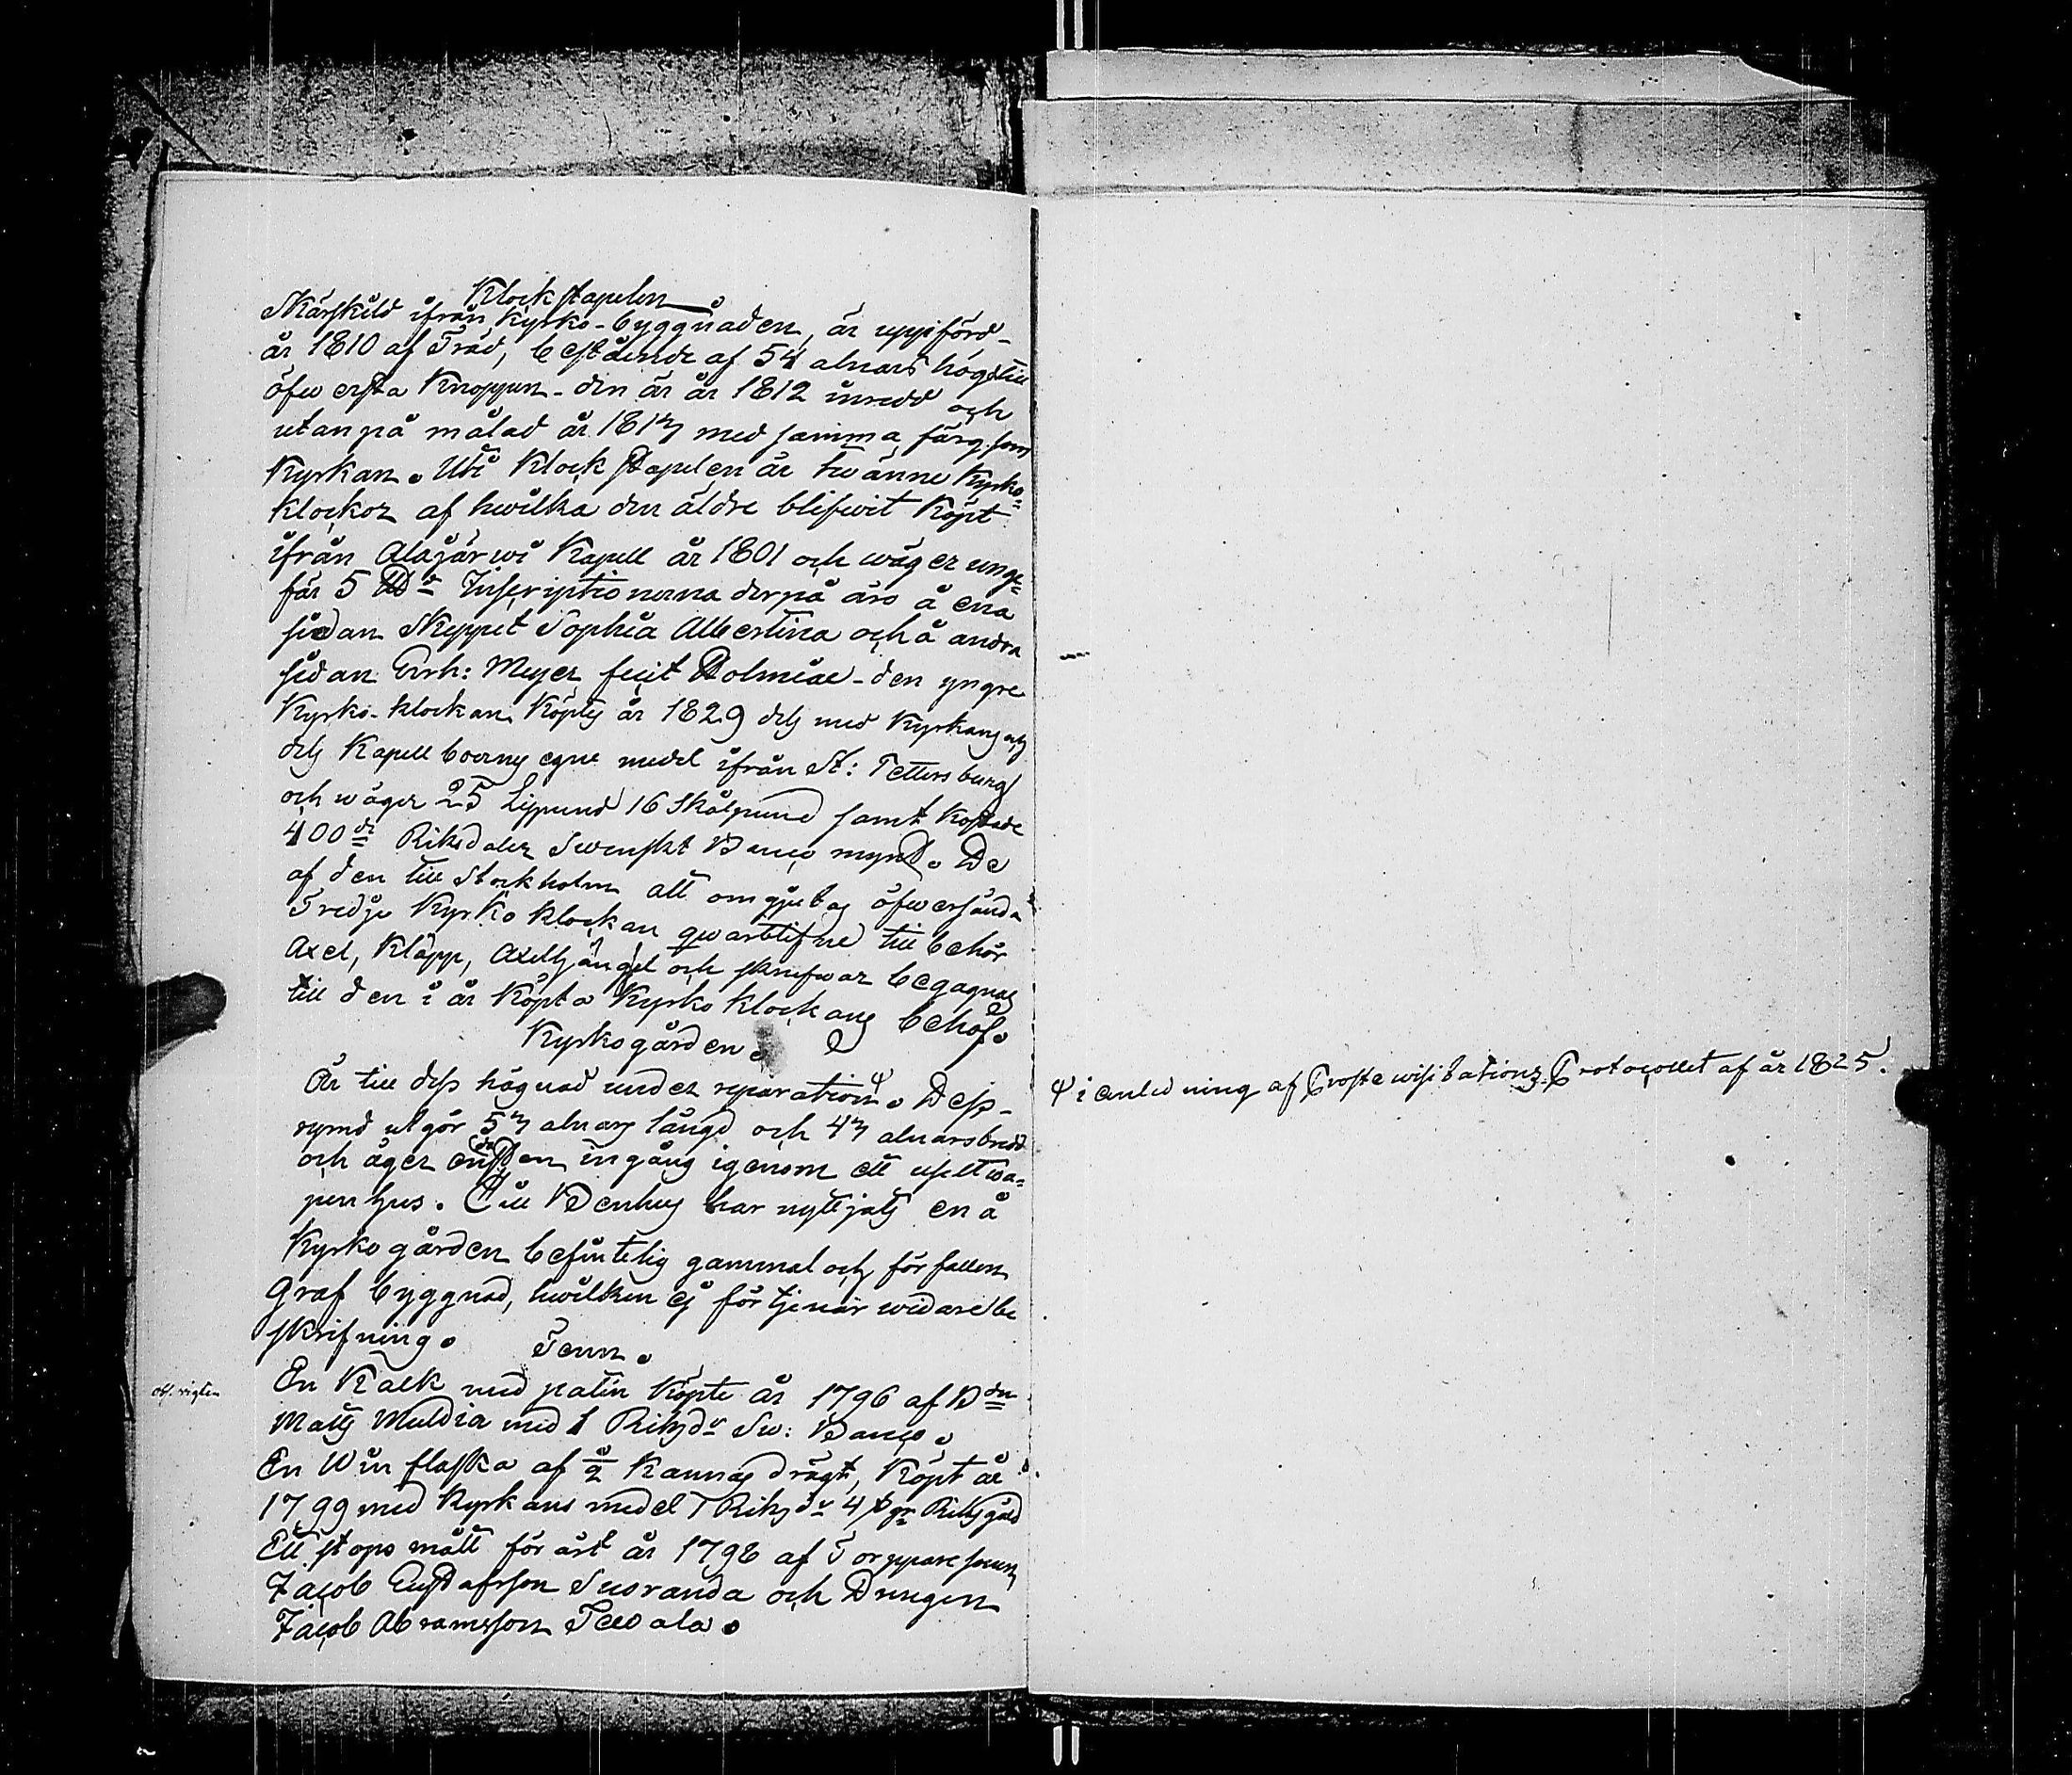 Klockstapelen
Särskild ifrån Kyrko-byggnaden, är uppförd
år 1810 af Träd, bestående af 54 alnars högd till
öfwersta Knoppen - den är år 1812 inredd och
utanpå målad år 1817 med samma färg som
Kyrkan. Uti Klock Stapelen är twänne Kyrko=
klockor af hwilka den äldre blifwit Köpt
ifrån Alajärwi Kapell år 1801 och wäger unge=
fär 5 Inscriptionerna derpå äro å ena
sidan Skeppet Sophia Albertina och å andra
sidan Gerh: Meyer fecit Holmiae - den yngre
Kyrko-klockan Köptes år 1829 dels med Kyrkans och
dels Kapellboernes egne medel ifrån St: Pettersburg
och wäger 25 Lispund 16 Skålpund samt kostade
400 dr Riksdaler Swenskt Banco mynt. De
af den till Stockholm att omgjutas öfwersända
Tredje Kyrko klockan qwarblifne tillbehör
Axel, Kläpp, Axelhängsel och skrufwar begagnas
till den i år Köpta Kyrko klockans behof.
Kyrkogården.
Är till dess hägnad under reparation Ψ. Dess
rymd utgör 57 alnars längd och 47 alnars bredd
och äger endast en ingång igenom ett uselt wa=
penhus. Till Benhus har nyttjats en å
Kyrkogården befintelig gammal och förfallen
Graf byggnad, hwilken ej förtjenar widare be
skrifning.
Tenn.
obs. vigten
En Kalk med patin Köpte år 1796 af Bdn
Matts Muldia med 1 Riksdr Sw: Banco.
En Win flaska af ½ Kannas drägt, Köpt år
1799 med Kyrkans medel 1 Riksdr 4 s gr Riksgäld
Ett stops mått förärt år 1798 af Torpparesonen
Jacob Gustafsson Suoranda och Drengen
Jacob Abramsson Tawala.
Ψ i anledning af Prostewisitations Protocollet af år 1825.